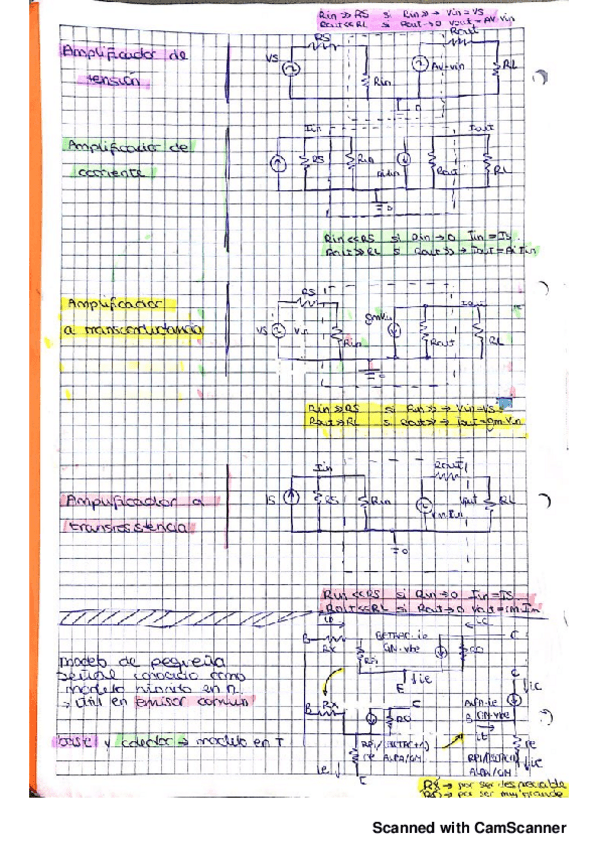 Rin >> RS si Rin >> → Vin = VS
Rout << RL si Rout → 0 Vout = AV·Vin
Amplificador de
tensión
RS
VS
Rin
Rout
AV·Vin
RL
Amplificador de
corriente
Iin
RS
Rin
Rout
Iout
RL
Rin << RS si Rin → 0 Iin = IS
Rout >> RL si Rout >> → Iout = Ai Iin
Amplificador
a transconductancia
RS
VS
Vin
Rin
Rout
RL
Rin >> RS si Rin >> → Vin = VS
Rout >> RL si Rout >> → Iout = gm Vin
Amplificador a
transresistencia
Iin
IS
RS
Rin
Rout
RL
Rin << RS si Rin → 0 Iin = IS
Rout << RL si Rout → 0 Vout = rm Iin
modelo de pequeña
señal conocido como
modelo híbrido en π
→ útil en emisor común
base y colector → modelo en T
B
RX
GM·vbe
RO
C
ic
E
ie
B
RX
RO
C
ie
C
ic
B
re
ie
RX → por ser despreciable
por ser muy grande
Scanned with CamScanner